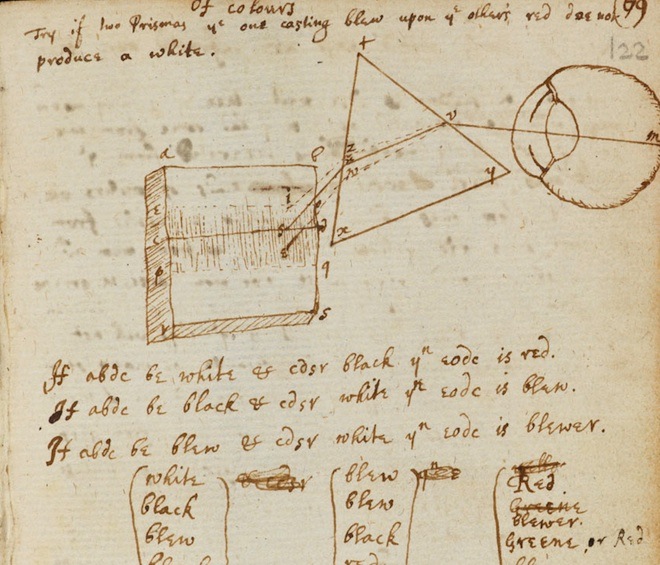 Of colours
99
Try if two Prismas yᵉ one casting blew upon yᵉ other's red doe not
122
produce a white.
If abdc be white & cdsr black yⁿ eodc is red.
If abdc be black & cdsr white yⁿ eodc is blew.
If abdc be blew & cdsr white yⁿ eodc is blewer.
white blew Red
black blew Greene
blewer.
blew black Greene, or Red
red